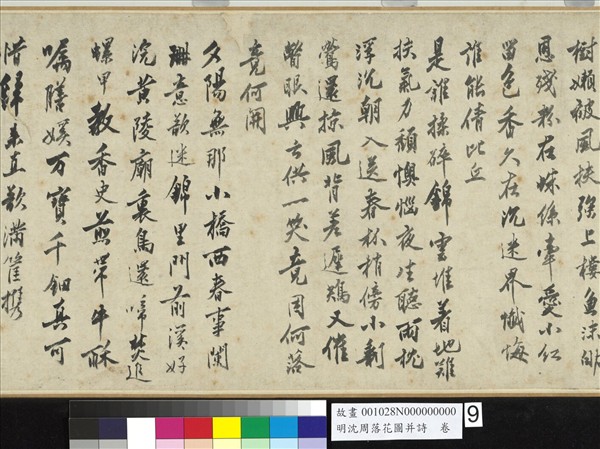 樹嬾被風扶強上樸魚沫晱
恩殘粉在蛛絲牽愛小紅
留色香久在沉迷界懺悔
誰能倩比丘
是誰揉碎錦雲堆着地難
扶氣力頹懊惱夜生聽雨枕
浮沉朝入送春杯梢傍小剩
鶯還掠風背差遲鴆又催
瞥眼興亡供一笑竟因何落
竟何開
夕陽無那小橋西春事闌
珊意欲迷錦里門前溪好
浣黃陵廟裏鳥還啼焚追
螺甲教香史煎帶牛酥
囑膳娭万寶千鈿真可
惜歸來直欲滿筐攜
故畫 001028N000000000
明沈周落花圖并詩 卷
9